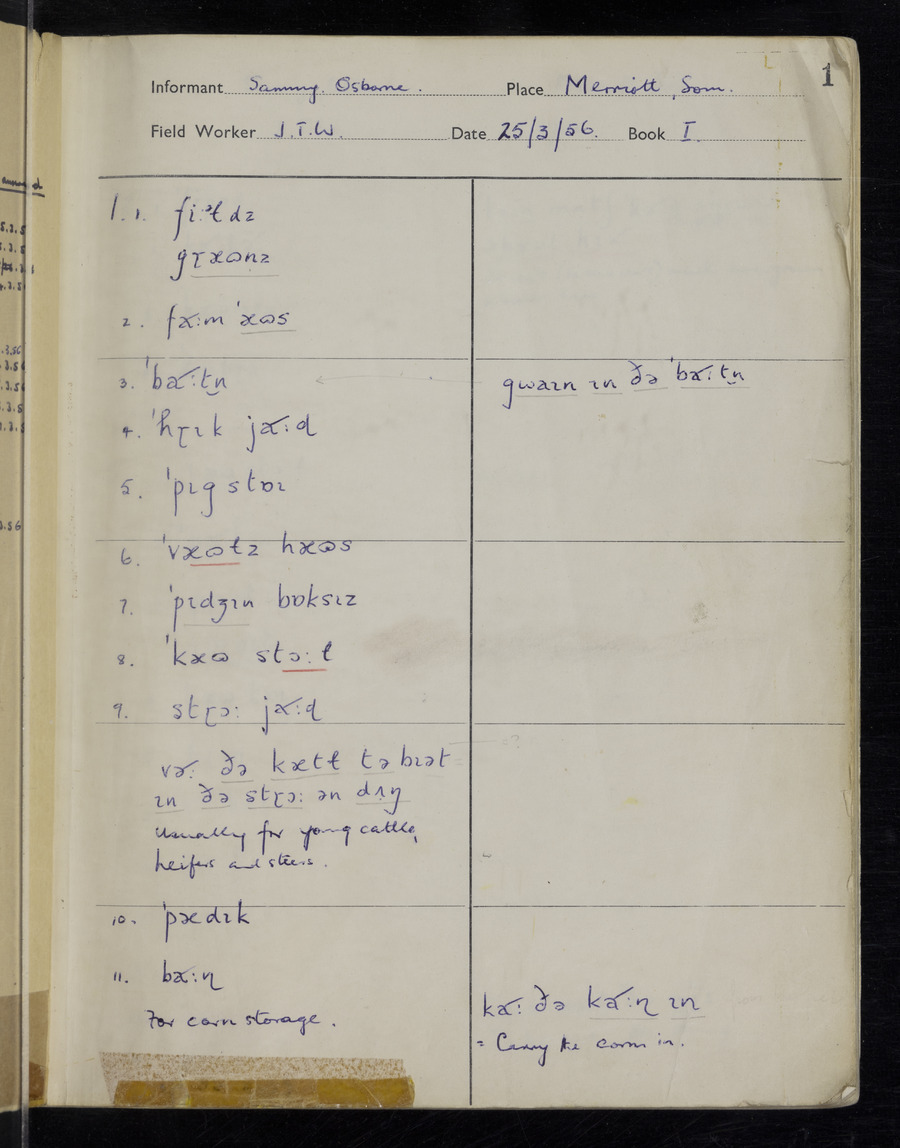 1
Informant Sammy Osborne. Place Merriott, Som.
Field Worker J.T.W. Date 25/3/56. Book I.
I. 1. fiːᵊɫdz
gɽæɷnz
2. fɑ˞ːm ˈæɷs
3. ˈbɑ˞ːtn̩ gwaɪn ɪn ðə ˈbɑ˞ːtn̩
4. ˈhɽɪk jɑ˞ːɖ
5. ˈpɪg stɒɪ
6. ˈvæɷɫz hæɷs
7. ˈpɪdʒɪn bɒksɪz
8. ˈkæɷ stɔːɫ
9. stɽɔː jɑ˞ːɖ
və˞ː ðə kætɫ tə bɪət
ɪn ðə stɽɔː ən dʌŋ
Usually for young cattle,
heifers and steers.
10. ˈpædɪk
11. bɑ˞ːɳ
For corn storage.
kɑ˞ː ðə kɑ˞ːɳ ɪn
= Carry the corn in.